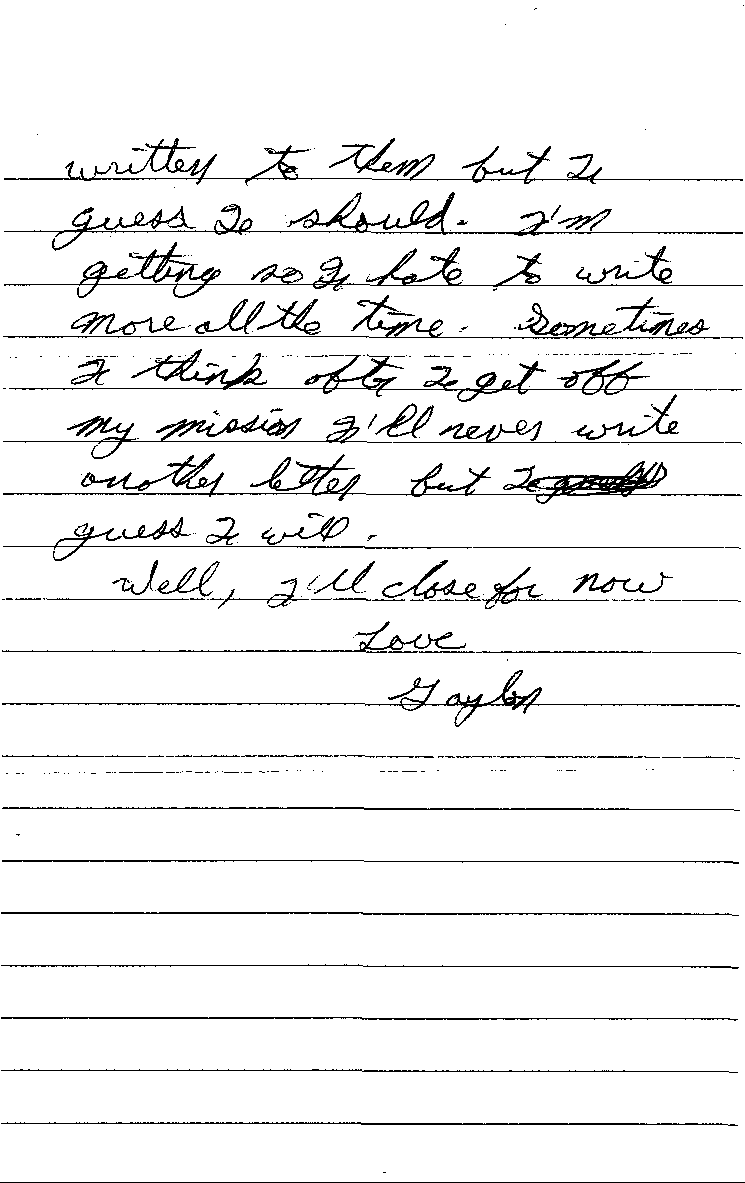 written to them but I
guess I should. I'm
getting so I hate to write
more all the time. Sometimes
I think after I get off
my mission I'll never write
another letter but I
guess I will.
Well, I'll close for now
Love
Gaylen